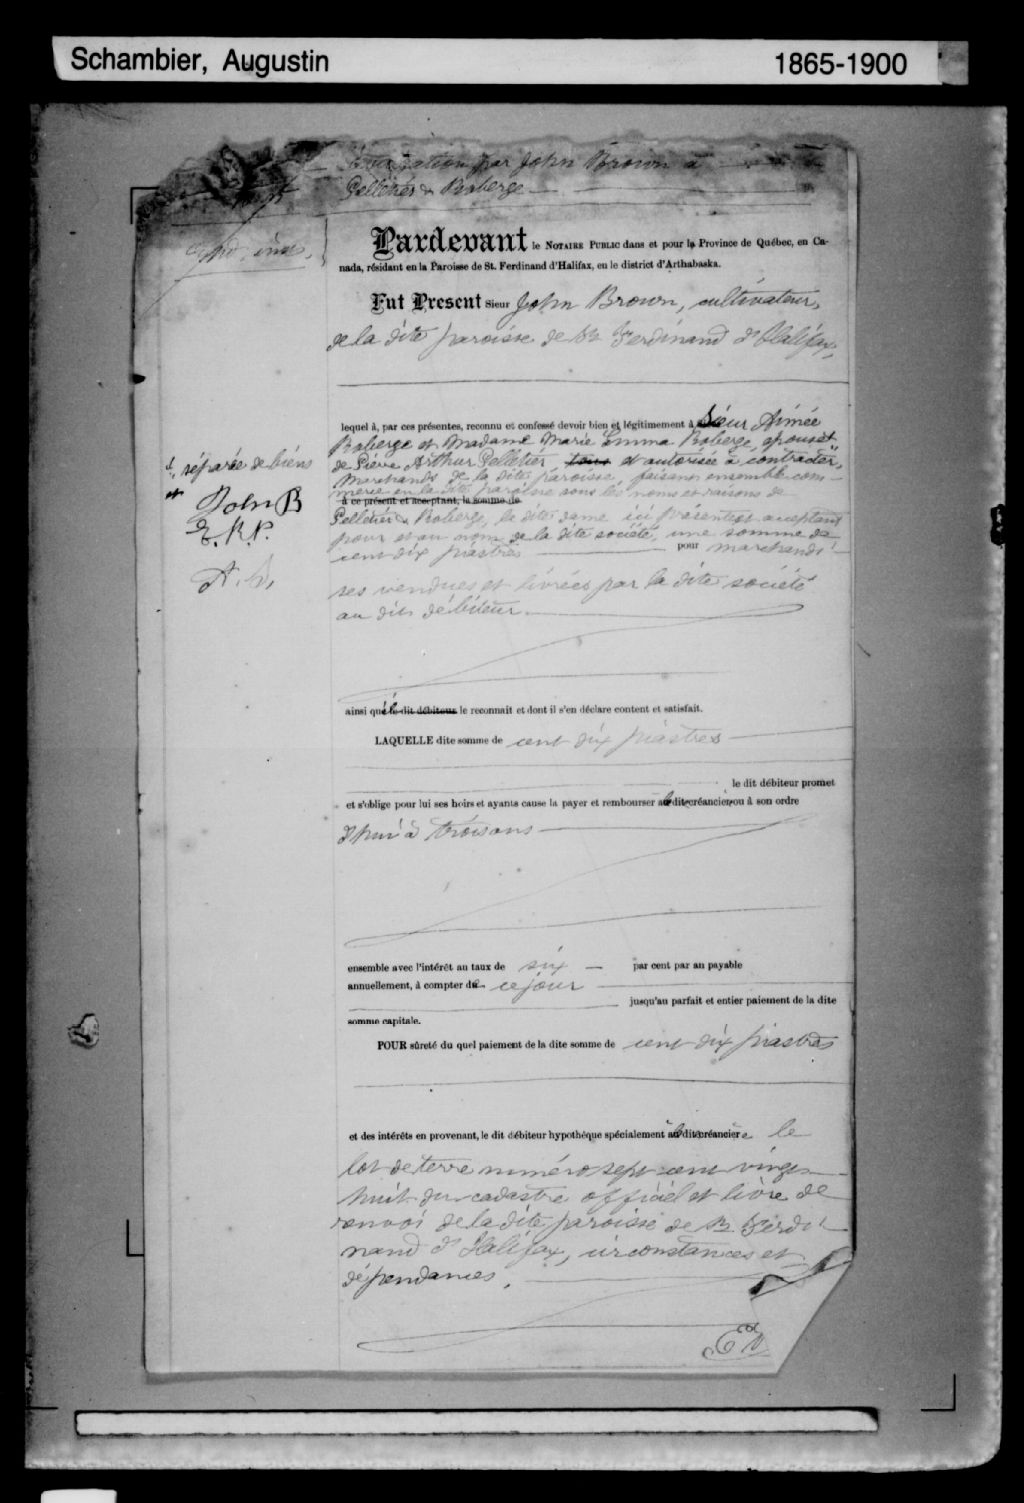 Schambier, Augustin
1865-1900
par John Brown à
Pelletier & Roberge
Pardevant le NOTAIRE PUBLIC dans et pour la Province de Québec, en Ca-
nada, résidant en la Paroisse de St. Ferdinand d'Halifax, en le district d'Arthabaska.
Fut Present Sieur John Brown, cultivateur,
de la dite paroisse de St Ferdinand d'Halifax,
lequel à, par ces présentes, reconnu et confessé devoir bien et légitimement à Sieur Aimée
Roberge et Madame Marie Emma Roberge, épouse
de Pierre Arthur Pelletier, tous et autorisée à contracter,
marchands de la dite paroisse, faisant ensemble com-
merce en la dite paroisse sous les noms et raisons de
à ce présent et acceptant, la somme de
Pelletier & Roberge, la dite dame ici présente et acceptant
pour et au nom de la dite société, une somme de
cent dix piastres pour marchandi-
ses vendues et livrées par la dite société
au dit débiteur.
séparée de biens
et
John B
E. R. P.
A. S.
ainsi qu'il le dit débiteur le reconnait et dont il s'en déclare content et satisfait.
LAQUELLE dite somme de cent dix piastres
le dit débiteur promet
et s'oblige pour lui ses hoirs et ayants cause la payer et rembourser dite créancier ou à son ordre
d'hui à trois ans
ensemble avec l'intérêt au taux de six par cent par an payable
annuellement, à compter de ce jour
jusqu'au parfait et entier paiement de la dite
somme capitale.
POUR sûreté du quel paiement de la dite somme de cent dix piastres
et des intérêts en provenant, le dit débiteur hypothèque spécialement dite créancière le
lot de terre numéro sept cent vingt
huit du cadastre officiel et livre de
renvoi de la dite paroisse de St Ferdi-
nand d'Halifax, circonstances et
dépendances.